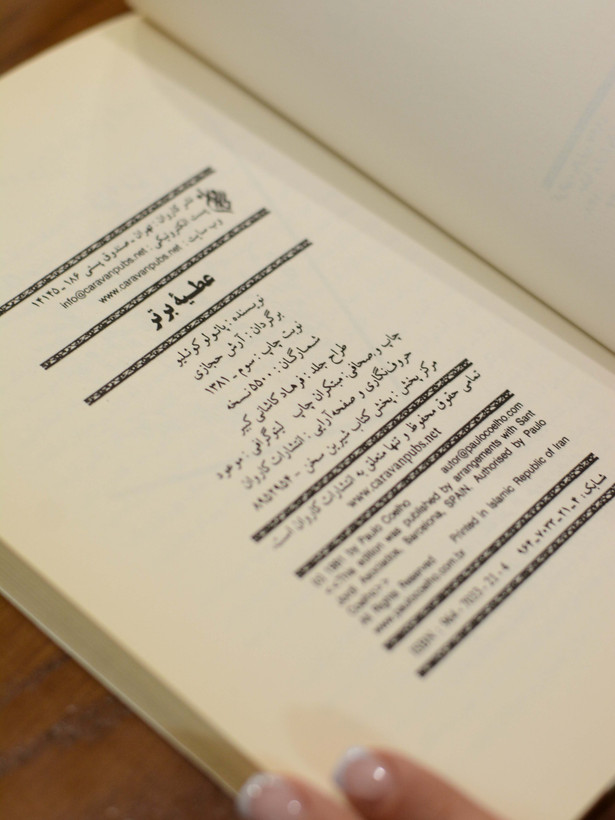 نشر کاروان: تهران ـ صندوق پستی ۱۸۶ ـ ۱۴۱۴۵
پست الکترونیکی: info@caravanpubs.net
وب سایت: www.caravanpubs.net
عطیهٔ برتر
نویسنده: پائولو کوئلیو
برگردان: آرش حجازی
نوبت چاپ: سوم ـ ۱۳۸۱
شمارگان: ۵۵۰۰ نسخه
طراح جلد: فرهاد کاشانی کبیر
چاپ و صحافی: مبتکران چاپ لیتوگرافی: موعود
حروف‌نگاری و صفحه‌آرایی: انتشارات کاروان
مرکز پخش: پخش کتاب شیرین سخن ـ
تمامی حقوق محفوظ و تنها متعلق به انتشارات کاروان است.
www.caravanpubs.net
(c) 1991 by Paulo Coelho autor@paulocoelho.com
<<This edition was published by arrangements with Sant
Jordi Asociados, Barcelona, SPAIN. Authorised by Paulo
Coelho>>
All Rights Reserved Printed in Islamic Republic of Iran
www.paulocoelho.com.br
شابک: ۴ـ۲۱ـ۷۰۳۳ـ۹۶۴
ISBN: 964 - 7033 - 21 - 4